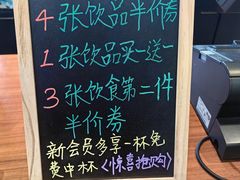 4张饮品半价券
1张饮品买一送一
3张饮食第二件
半价券
新会员多享一杯免
费中杯〈惊喜抱购〉